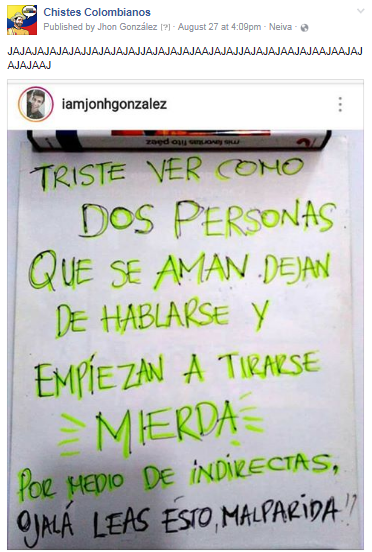 Chistes Colombianos
Published by Jhon González [?] · August 27 at 4:09pm · Neiva ·
JAJAJAJAJAJAJJAJAJAJAJJAJAJAJAAJAJAJJAJAJAJAAJAJAAJAAJAJ
AJAJAAJ
iamjonhgonzalez
mis favoritas fito páez
TRISTE VER COMO
DOS PERSONAS
QUE SE AMAN DEJAN
DE HABLARSE Y
EMPÍEZAN A TIRARSE
MIERDA
POR MEDIO DE INDIRECTAS,
OJALÁ LEAS ÉSTO, MALPARIDA!?